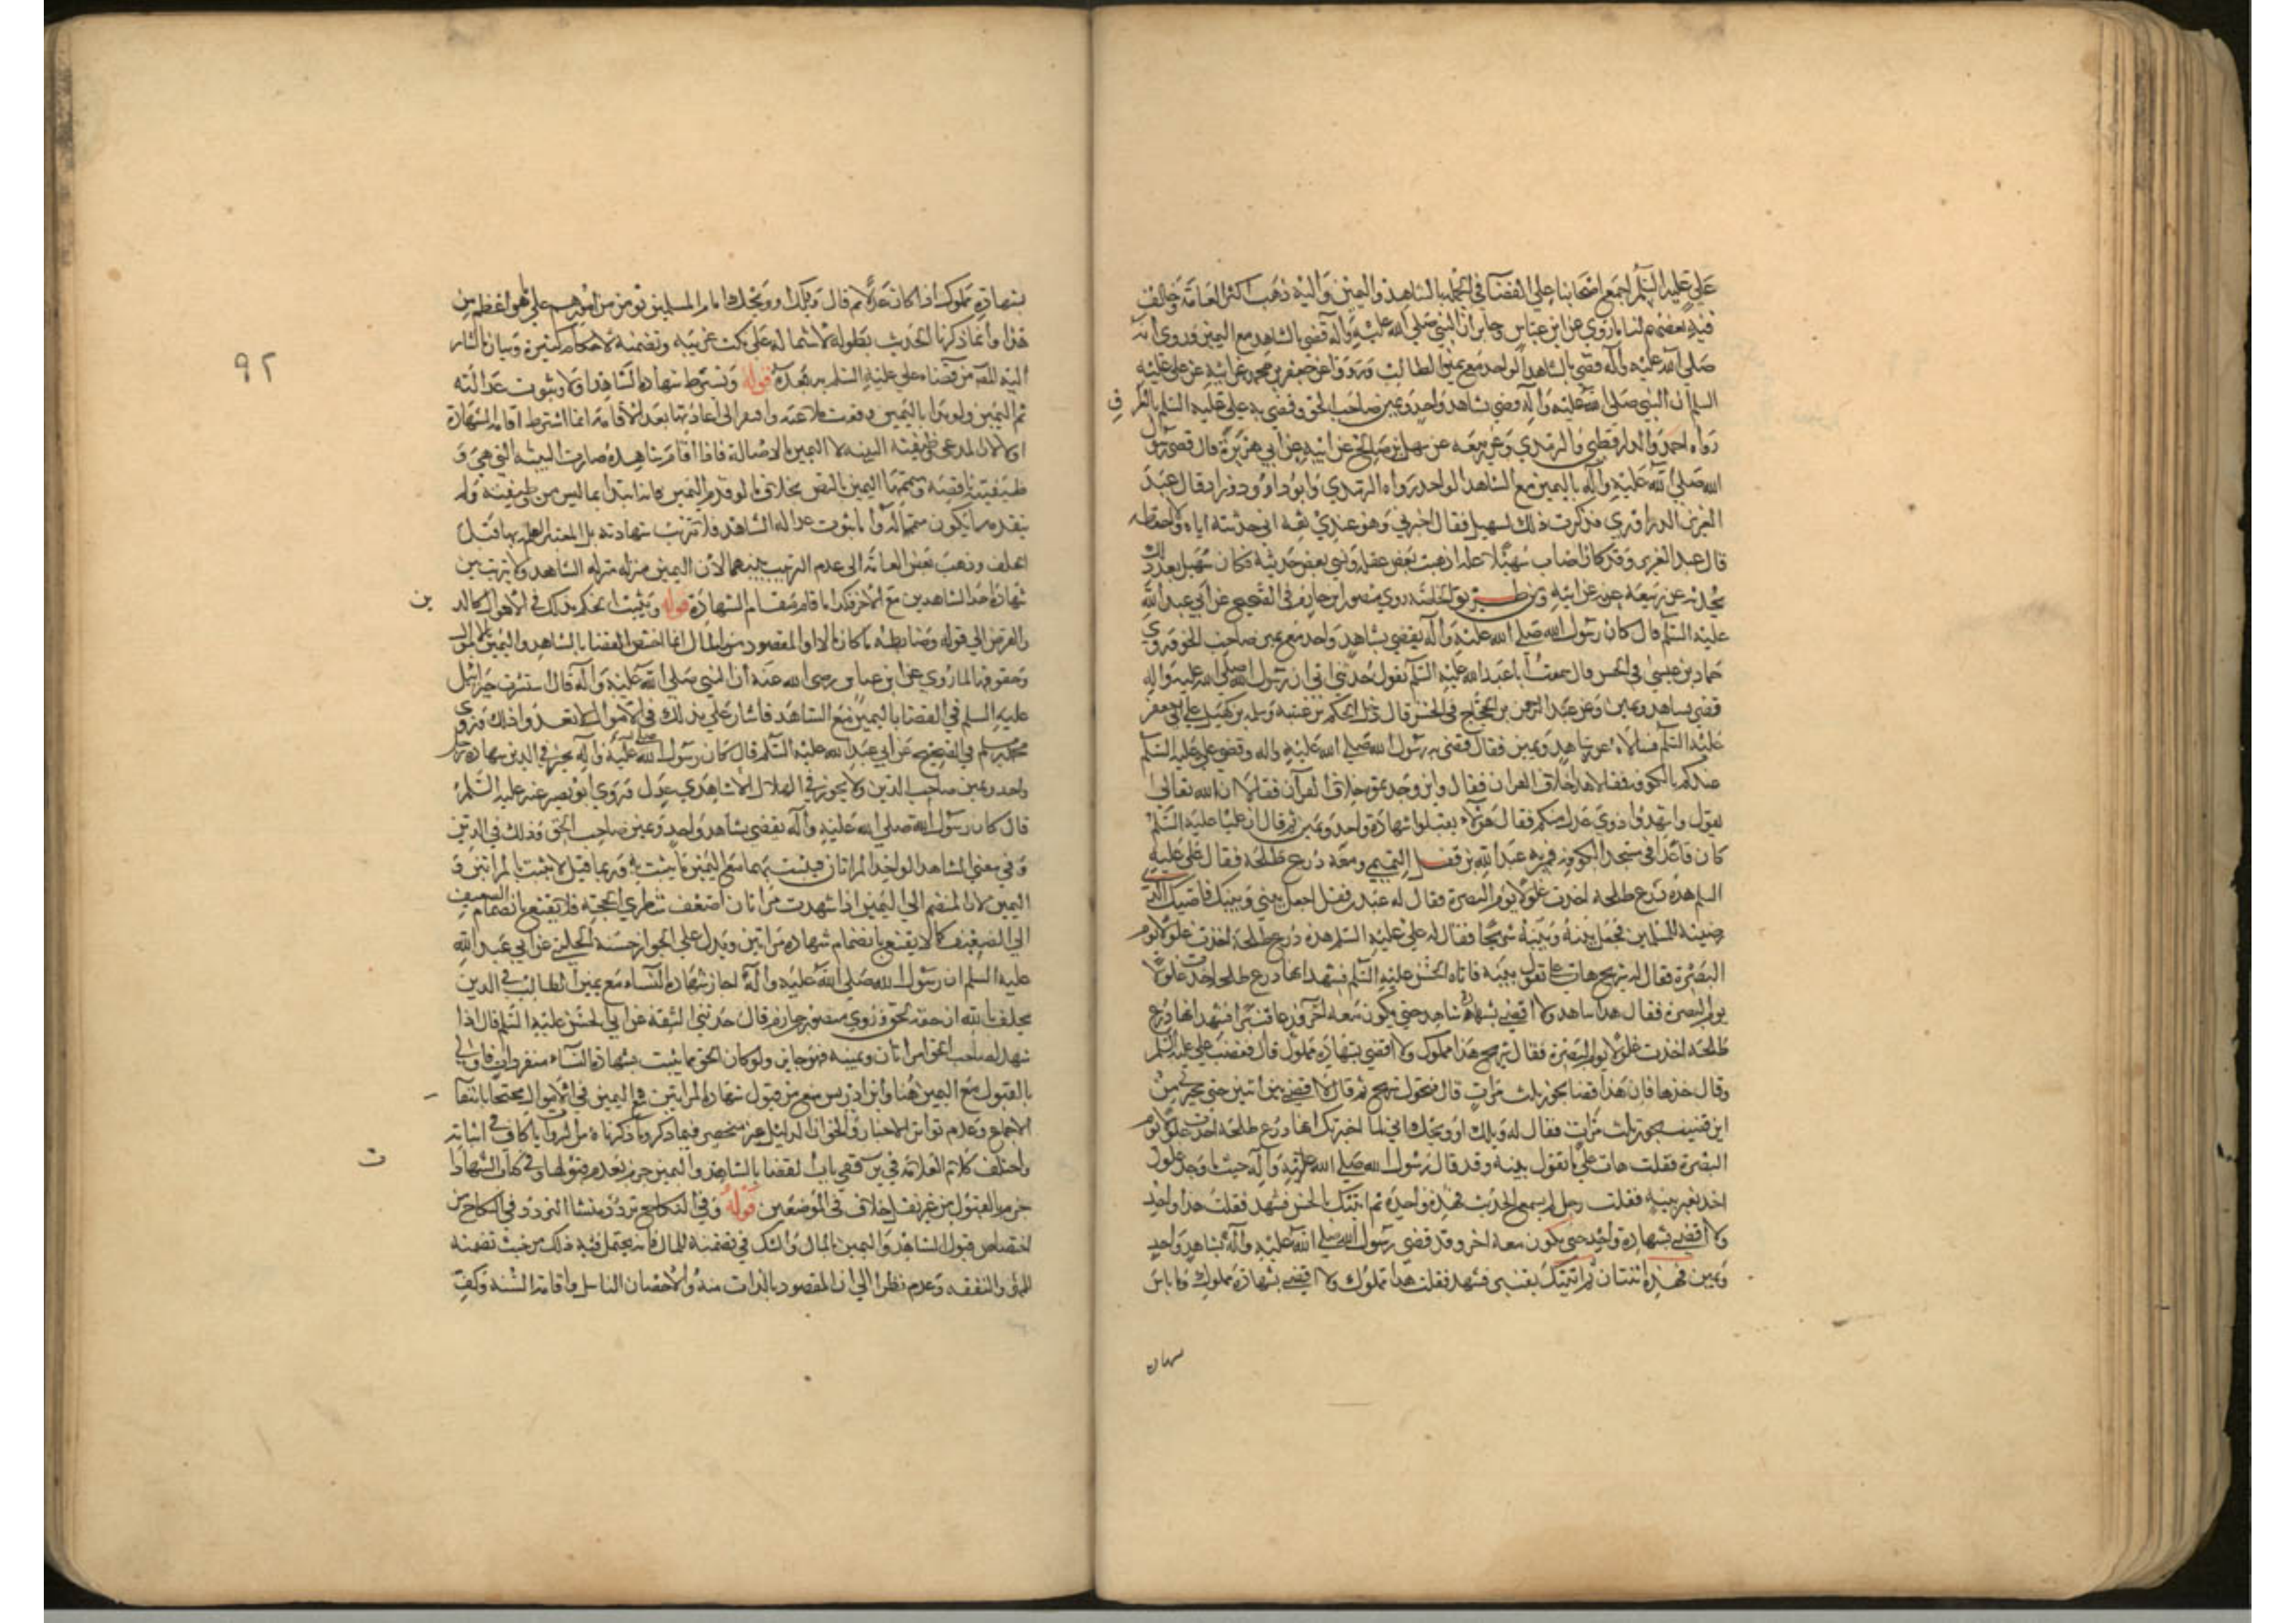 علي عليه السلم اجمع اصحابنا علي القضا في الجمله بالشاهد واليمين واليه ذهب اكثر العامة وخالف
فيه بعضهم لنا ما روي عن ابن عباس وجابر ان النبي صلي الله عليه وآله قضي بالشاهد مع اليمين وروي انه
صلي الله عليه وآله قضي بالشاهد الواحد مع يمين الطالب ورووا عن جعفر بن محمد عن ابيه عن علي عليه
السلم ان النبي صلي الله عليه وآله قضي بشاهد واحد ويمين صاحب الحق وقضي به علي عليه السلم بالعراق
رواه احمد والدارقطني والترمذي وعن ربيعه عن سهل بن صالح عن ابيه عن ابي هريرة قال قضي رسول
الله صلي الله عليه وآله باليمين مع الشاهد الواحد رواه الترمذي وابو داود وزاد قال عبد
العزيز الدراوردي فذكرت ذلك لسهيل فقال اخبرني وهو عندي ثقه اني حدثته اياه ولا احفظه
قال عبد العزيز وقد كان اصاب سهيلا علة اذهبت بعض عقله ونسي بعض حديثه فكان سهيل بعد ذلك
يحدث عن ربيعة عنه عن ابيه ومن طريق الخاصة روي منصور ابن حازم في الصحيح عن ابي عبد الله
عليه السلم قال كان رسول الله صلي الله عليه وآله يقضي بشاهد واحد مع يمين صاحب الحق وروي
حماد بن عيسي في الحسن قال سمعت ابا عبد الله عليه السلم يقول حدثني ابي ان رسول الله صلي الله عليه واله
قضي بشاهد ويمين وعن عبد الرحمن بن الحجاج في الحسن قال دخل الحكم بن عتيبه وسلمه بن كهيل علي ابي جعفر
عليه السلم فسالاه عن شاهد ويمين فقال قضي به رسول الله صلي الله عليه واله وقضي علي عليه السلم
عندكم بالكوفه فقالا هذا خلاف القران فقال واين وجدتموه خلاف القرآن فقالا ان الله تعالي
يقول واشهدوا ذوي عدل منكم فقال هو لا تقبلوا شهادة واحد ويمين ثم قال ان عليا عليه السلم
كان قاعدا في مسجد الكوفه فمر به عبد الله بن قفل التميمي ومعه درع طلحة فقال علي عليه
السلم هذه درع طلحة اخذت غلولا يوم البصرة فقال له عبد الله بن قفل اجعل بيني وبينك قاضيك الذي
رضيته للمسلمين فجعل بينه وبينه شريحا فقال له علي عليه السلم هذه درع طلحة اخذت غلولا يوم
البصرة فقال له شريح هات علي ما تقول بينه فاتاه الحسن عليه السلم فشهد انها درع طلحة اخذت غلولا
يوم البصرة فقال هذا شاهد ولا اقضي بشهادة شاهد حتي يكون معه اخر فدعا قنبرا فشهد انها درع
طلحة اخذت غلولا يوم البصرة فقال شريح هذا مملوك ولا اقضي بشهادة مملوك قال فغضب علي عليه السلم
وقال خذها فان هذا قضا بجور ثلث مرات قال فتحول شريح ثم قال لا اقضي بين اثنين حتي تخبرني من
اين قضيت بجور ثلث مرات فقال له ويلك او ويحك اني لما اخبرتك انها درع طلحة اخذت غلولا يوم
البصرة فقلت هات علي ما تقول بينه وقد قال رسول الله صلي الله عليه وآله حيث ما وجد غلول
اخذ بغير بينه فقلت رجل لم يسمع الحديث فهذه واحدة ثم اتيتك بالحسن فشهد فقلت هذا واحد
ولا اقضي بشهادة واحد حتي يكون معه اخر وقد قضي رسول الله صلي الله عليه وآله بشاهد واحد
ويمين فهذه ثنتان ثم اتيتك بقنبر فشهد فقلت هذا مملوك ولا اقضي بشهادة مملوك وما باس
شهاده
٩٢
بشهادة مملوك اذا كان عدلا ثم قال ويلك او ويحك امام المسلمين يؤمن من امورهم علي ما هو اعظم من
هذا وانما ذكرنا الحديث بطوله لاشتماله علي نكت غريبه وتضمنه لاحكام كثيرة وبيان ما اشار
اليه المصنف من قضاء علي عليه السلم به بعده قوله ويشترط شهادة الشاهد اولا وثبوت عدالته
ثم اليمين ولو بدا باليمين وقعت لاغيه وافتقر الي اعادتها بعد الاقامة انما اشترط اقامة الشهادة
اولا لان المدعي وظيفته البينه لا اليمين بالاصالة فاذا اقام شاهده صارت البينه التي هي
وظيفته ناقصة ويتممها اليمين بالنص بخلاف ما لو قدم اليمين فانه ابتدا بما ليس من وظيفته ولم
يتقدمه ما يكون متمما له واما ثبوت عدالة الشاهد فلا تترتب شهادته بل المعتبر العلم بها قبل
الحلف وذهب بعض العامة الي عدم الترتيب بينهما لان اليمين منزله منزله الشاهد ولا ترتيب بين
شهادة احد الشاهدين مع الاخر فكذا ما قام مقام الشهادة قوله ويثبت الحكم بذلك في الاموال كالدين
والقرض الي قوله وضابطه ما كان مالا او المقصود منه المال انما اختص القضا بالشاهد واليمين بالاموال
وحقوقها لما روي عن ابن عباس رضي الله عنه ان النبي صلي الله عليه وآله قال استشرت جبرائيل
عليه السلم في القضا باليمين مع الشاهد فاشار علي بذلك في الاموال لا تعدوا ذلك وروي
محمد بن مسلم في الصحيح عن ابي عبد الله عليه السلم قال كان رسول الله صلي الله عليه وآله يجيز في الدين شهادة رجل
واحد ويمين صاحب الدين ولا يجوز في الهلال الا شاهدي عدل وروي ابو بصير عنه عليه السلم
قال كان رسول الله صلي الله عليه وآله يقضي بشاهد واحد ويمين صاحب الحق وذلك في الدين
وفي معني الشاهد الواحد المراتان فيثبت بهما مع اليمين ما يثبت به وربما قيل لا يثبت بالمراتين و
اليمين لان المنضم الي اليمين اذا شهدت مراتان اضعف شطري الحجة فلا يقنع بانضمام الضعيف
الي الضعيف كما لا يقنع بانضمام شهادة مراتين ويدل علي الجواز حسنة الحلبي عن ابي عبد الله
عليه السلم ان رسول الله صلي الله عليه وآله اجاز شهادة النساء مع يمين الطالب في الدين
يحلف بالله ان حقه لحق وروي منصور بن حازم قال حدثني الثقه عن ابي الحسن عليه السلم قال اذا
شهد لصاحب الحق امراتان ويمينه فهو جايز ولو كان الحق مما يثبت بشهادة النساء منفردات فاولي
بالقبول مع اليمين هنا وابن ادريس منع من قبول شهادة المراتين مع اليمين في الاموال محتجا بانتفا
الاجماع وعدم تواتر الاخبار والحق ان الدليل غير منحصر فيما ذكر وما ذكرناه من الروايات كاف في اثباته
واختلف كلام العلامة في باب القضا بالشاهد واليمين جزم بعدم قبولها وفي كتاب الشهادات
جزم بالقبول من غير نقل خلاف في الموضعين قوله وفي النكاح تردد منشا التردد في النكاح من
اختصاص قبول الشاهد واليمين بالمال والشك في تضمنه المال فانه يحتمل فيه ذلك من حيث تضمنه
المهر والنفقه وعدم نظرا الي ان المقصود بالذات منه الاحصان والتناسل واقامة السنة وكف